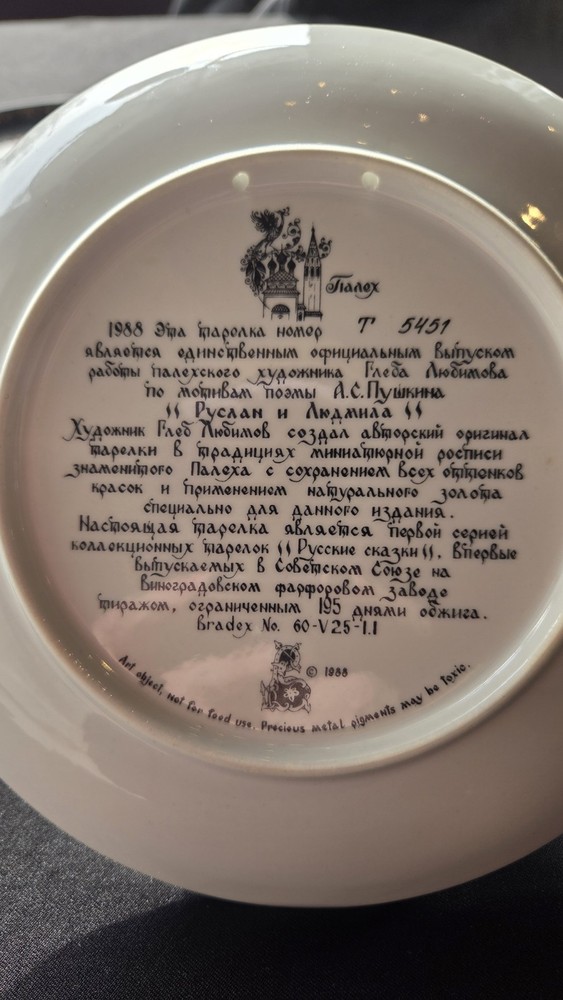 Палех
1988 Эта тарелка номер Т 5451
является единственным официальным выпуском
работы палехского художника Глеба Любимова
по мотивам поэмы А.С.Пушкина
" Руслан и Людмила "
Художник Глеб Любимов создал авторский оригинал
тарелки в традициях миниатюрной росписи
знаменитого Палеха с сохранением всех оттенков
красок и применением натурального золота
специально для данного издания.
Настоящая тарелка является первой серией
коллекционных тарелок " Русские сказки ", впервые
выпускаемых в Советском Союзе на
Виноградовском фарфоровом заводе
тиражом, ограниченным 195 днями обжига.
Bradex No. 60-V25-1.1
© 1988
Art object, not for food use. Precious metal pigments may be toxic.